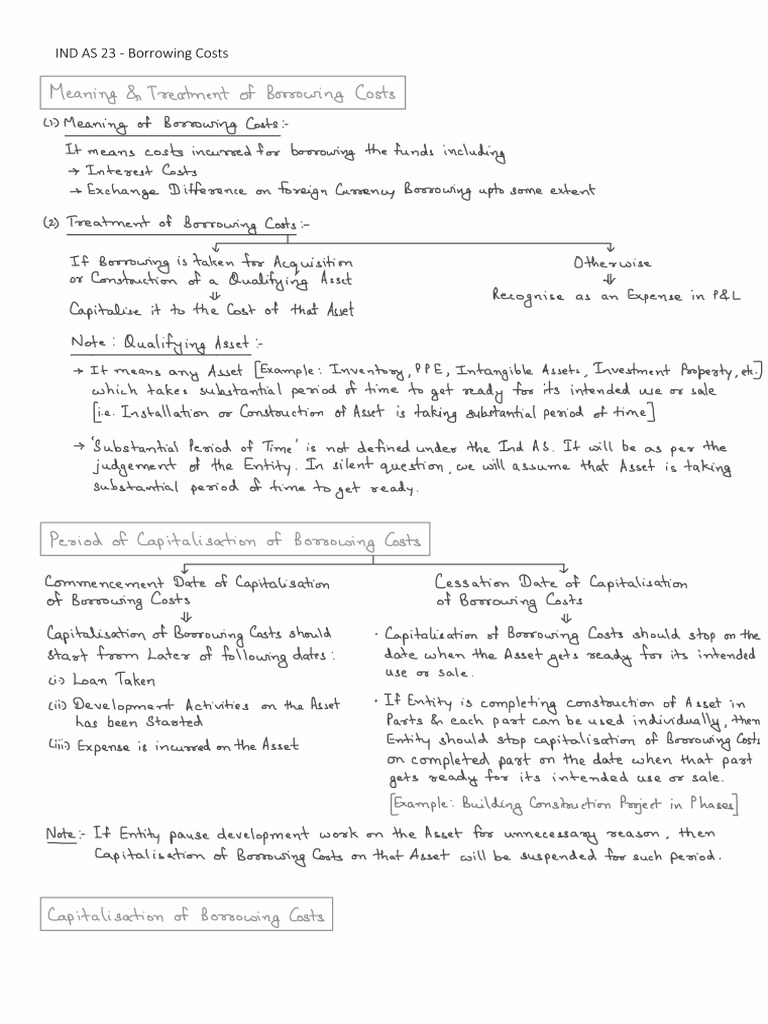 IND AS 23 - Borrowing Costs
Meaning & Treatment of Borrowing Costs
(1) Meaning of Borrowing Costs:-
It means costs incurred for borrowing the funds including
→ Interest Costs
→ Exchange Difference on foreign Currency Borrowing upto some extent
(2) Treatment of Borrowing Costs:-
If Borrowing is taken for Acquisition
or Construction of a Qualifying Asset
⇓
Capitalise it to the Cost of that Asset
Otherwise
⇓
Recognise as an Expense in P&L
Note: Qualifying Asset:-
→ It means any Asset [Example: Inventory, PPE, Intangible Assets, Investment Property, etc.]
which takes substantial period of time to get ready for its intended use or sale
[i.e. Installation or Construction of Asset is taking substantial period of time]
→ 'Substantial Period of Time' is not defined under the Ind AS. It will be as per the
judgement of the Entity. In silent question, we will assume that Asset is taking
substantial period of time to get ready.
Period of Capitalisation of Borrowing Costs
Commencement Date of Capitalisation
of Borrowing Costs
⇓
Capitalisation of Borrowing Costs should
start from Later of following dates:
(i) Loan Taken
(ii) Development Activities on the Asset
has been Started
(iii) Expense is incurred on the Asset
Cessation Date of Capitalisation
of Borrowing Costs
⇓
• Capitalisation of Borrowing Costs should stop on the
date when the Asset gets ready for its intended
use or sale.
• If Entity is completing construction of Asset in
Parts & each part can be used individually, then
Entity should stop capitalisation of Borrowing Costs
on completed part on the date when that part
gets ready for its intended use or sale.
[Example: Building Construction Project in Phases]
Note:- If Entity pause development work on the Asset for unnecessary reason, then
Capitalisation of Borrowing Costs on that Asset will be suspended for such period.
Capitalisation of Borrowing Costs